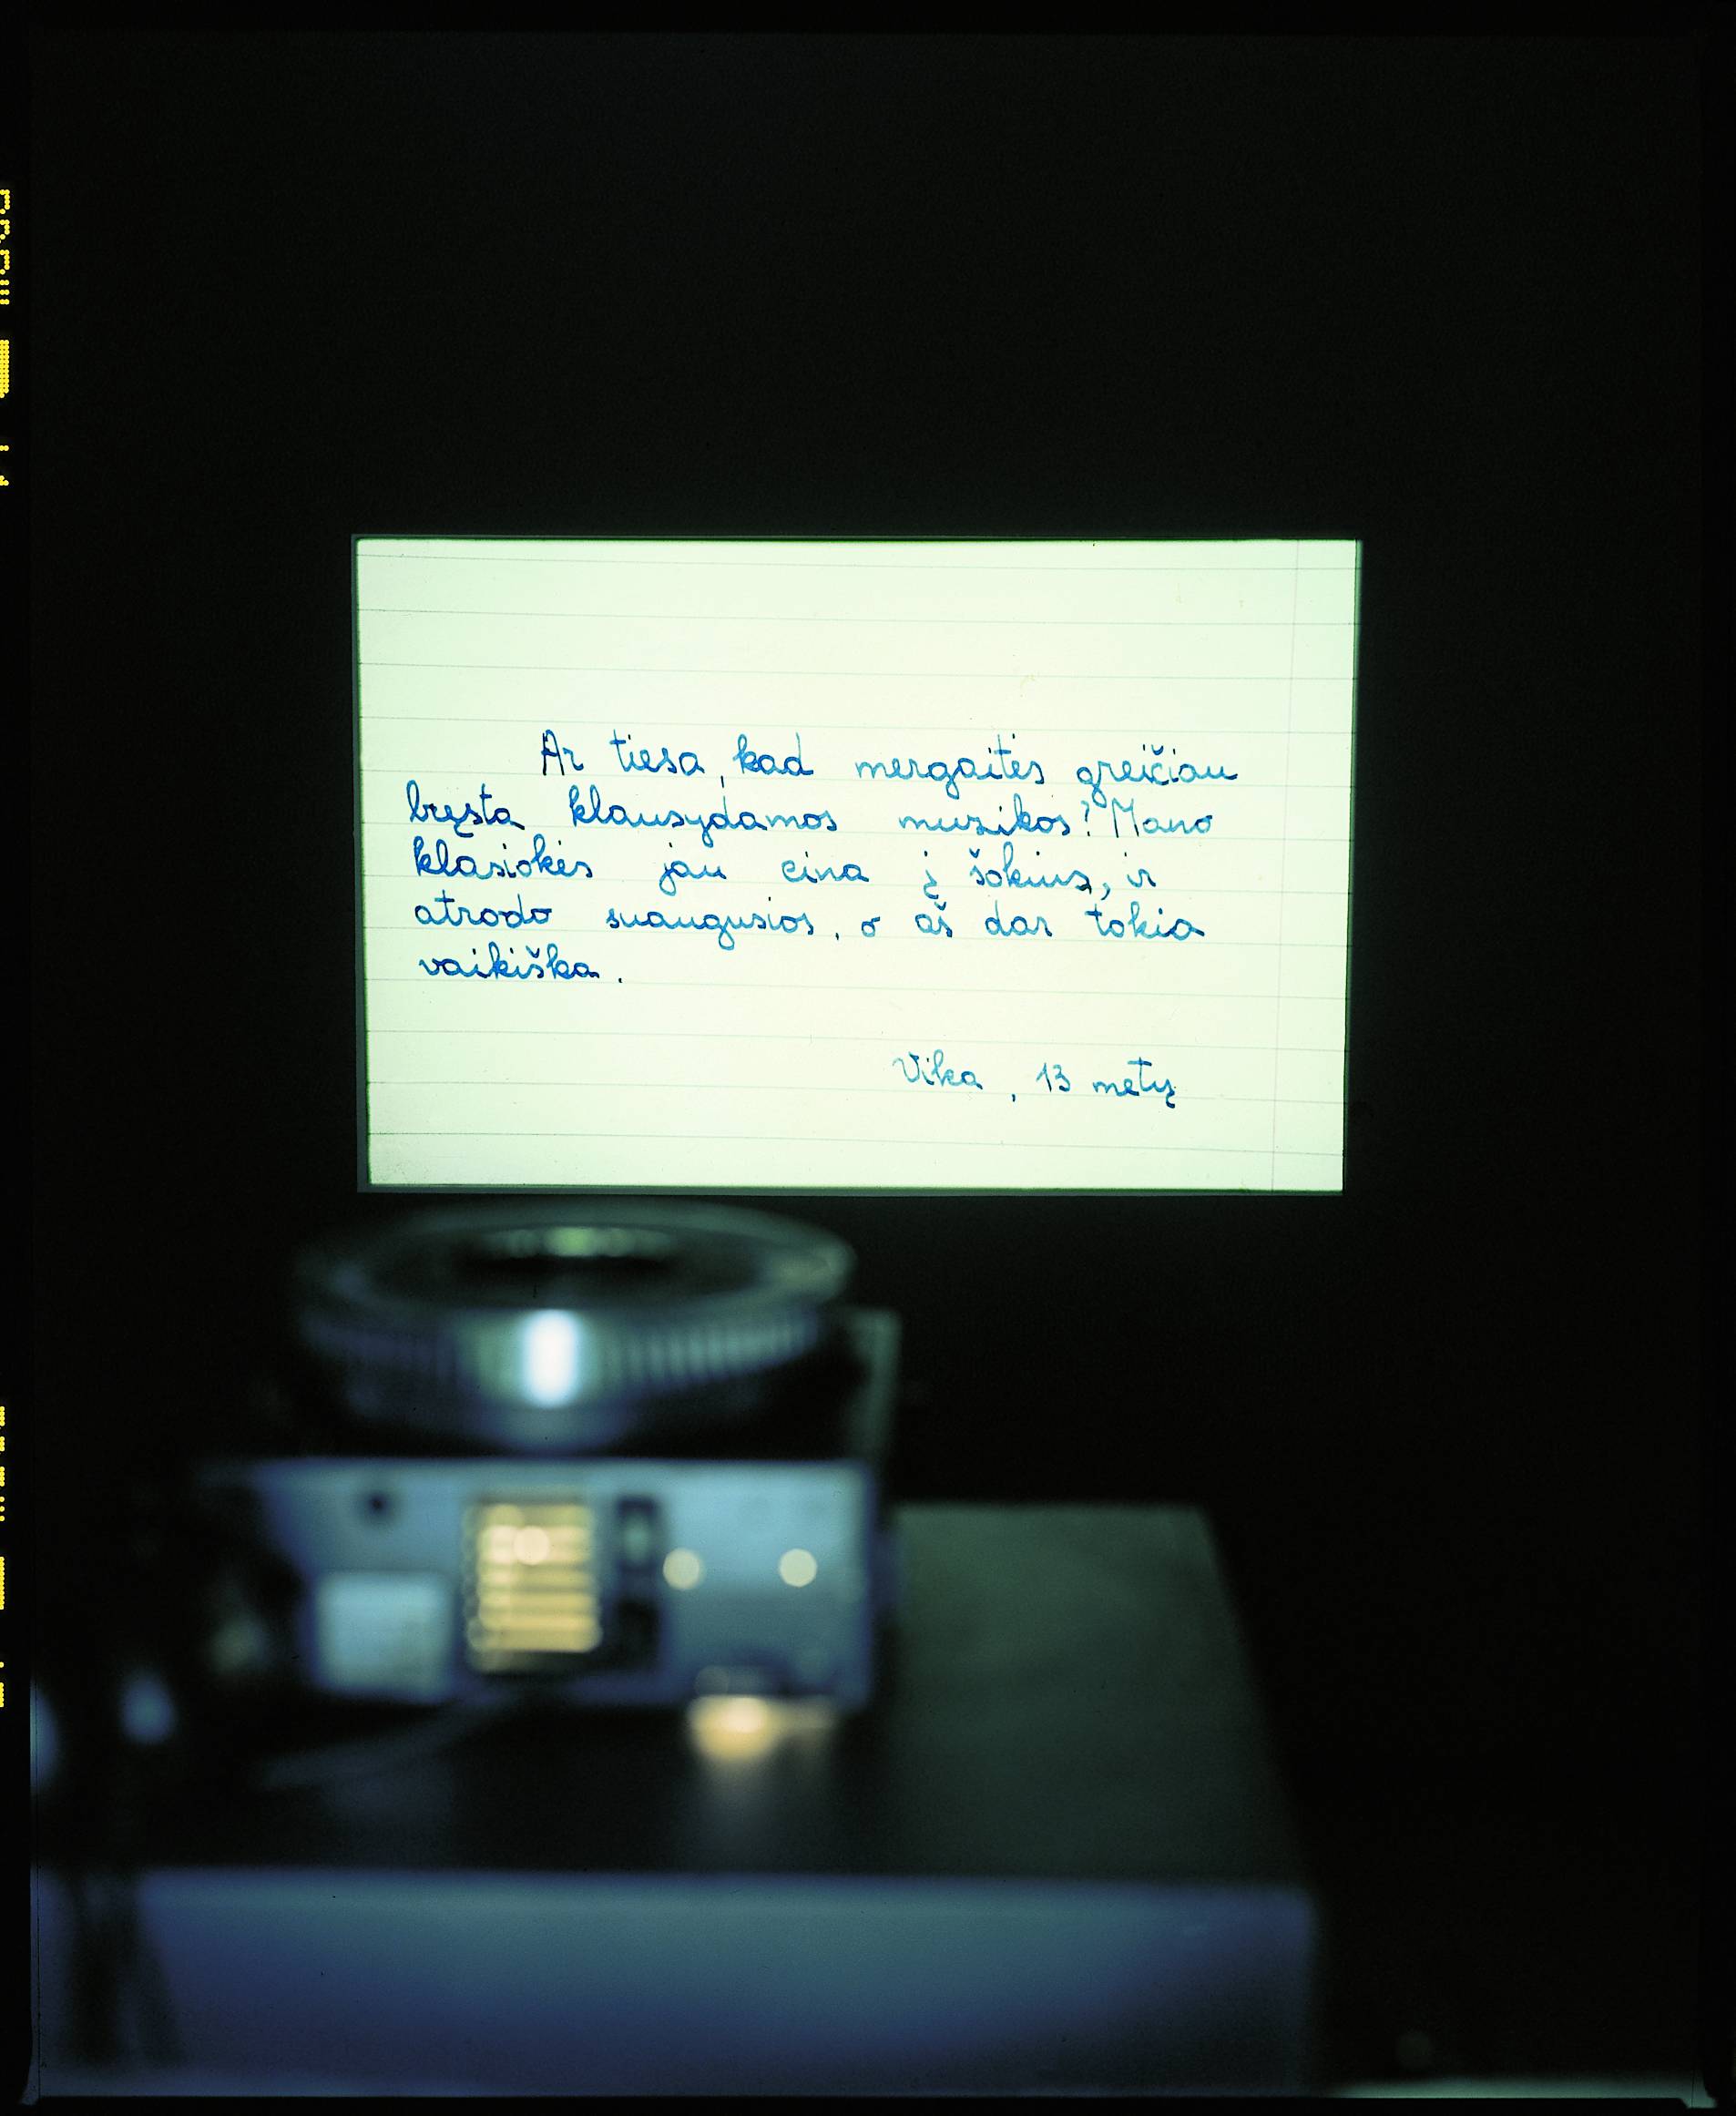 Ar tiesa, kad mergaitės greičiau
bręsta klausydamos muzikos? Mano
klasiokės jau eina į šokius, ir
atrodo suaugusios, o aš dar tokia
vaikiška.
Vika, 13 metų